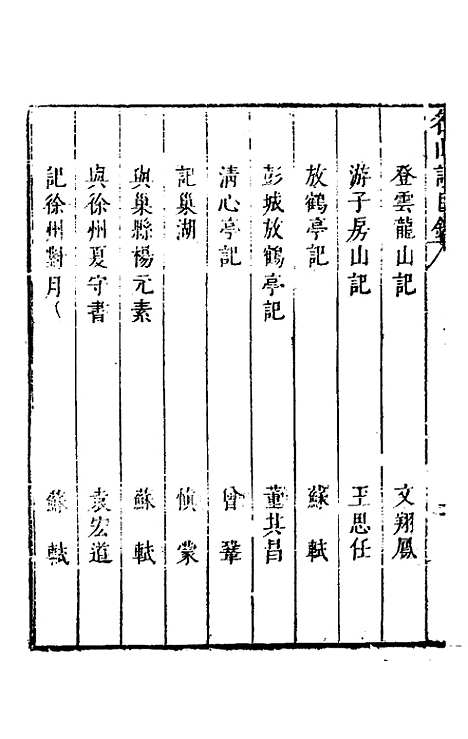 名山記目錄八
登雲龍山記 文翔鳳
游子房山記 王思任
放鶴亭記 蘇軾
彭城放鶴亭記 董其昌
清心亭記 曾鞏
記巢湖 慎蒙
與巢縣楊元素 蘇軾
與徐州夏守書 袁宏道
記徐州對月 蘇軾